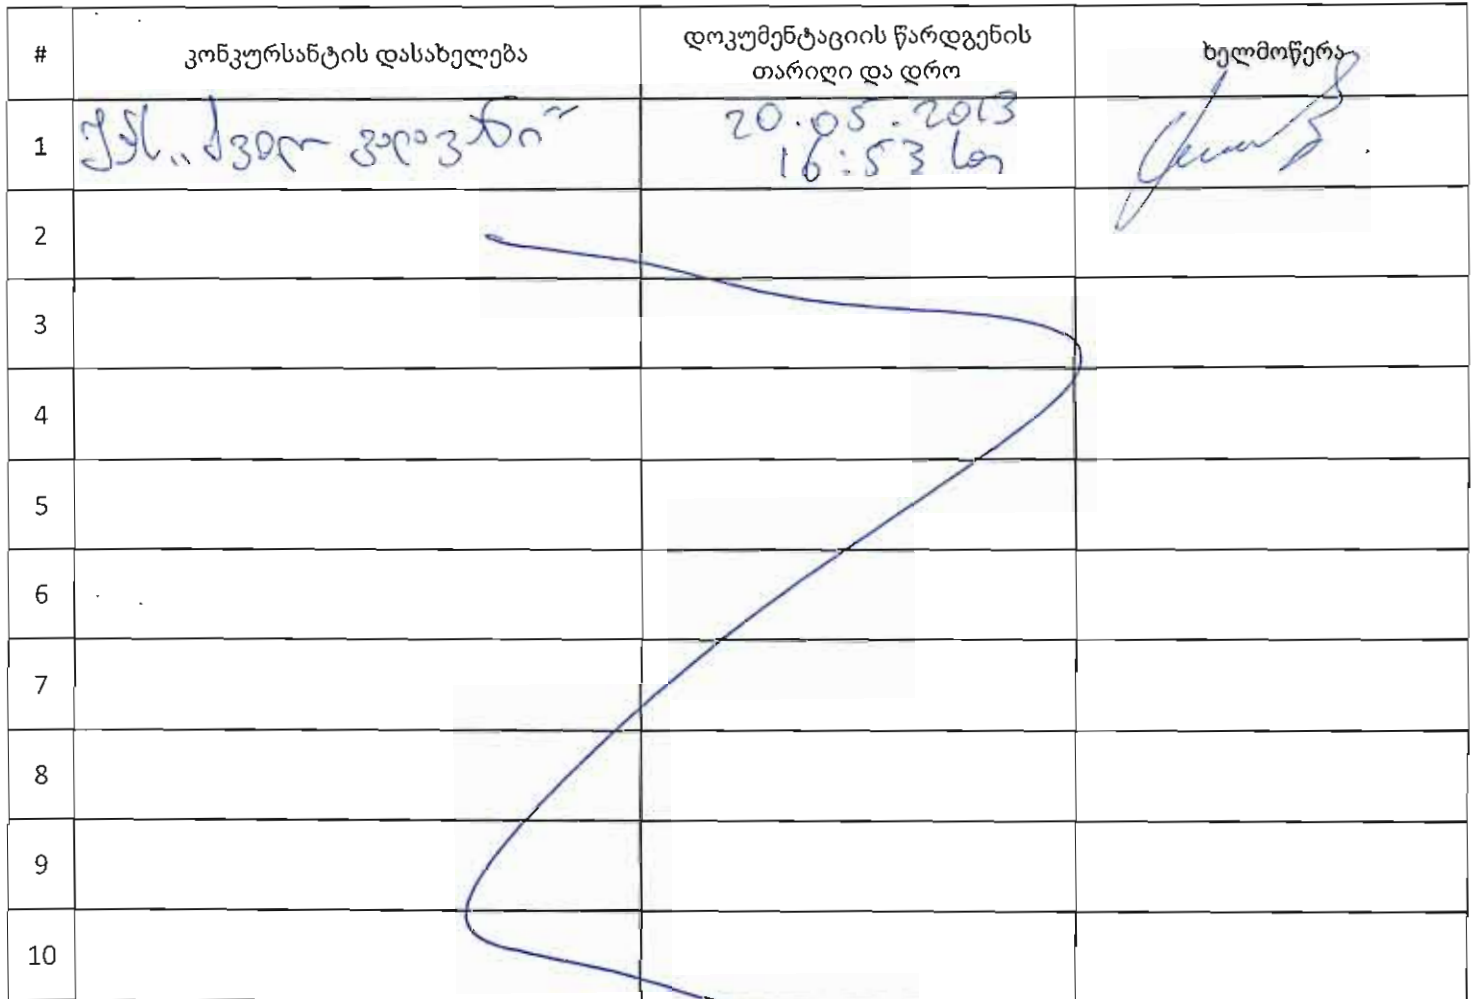 #
კონკურსანტის დასახელება
დოკუმენტაციის წარდგენის
თარიღი და დრო
ხელმოწერა
1
20.05.2013
16:53 სთ
2
3
4
5
6
7
8
9
10